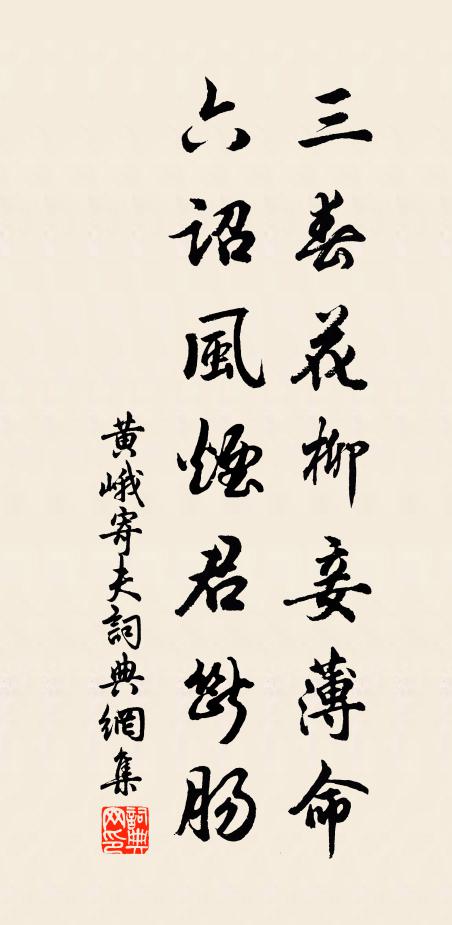 三春花柳妾薄命
六詔風煙君斷腸
黄峨寄夫詞典網集
詞典网印